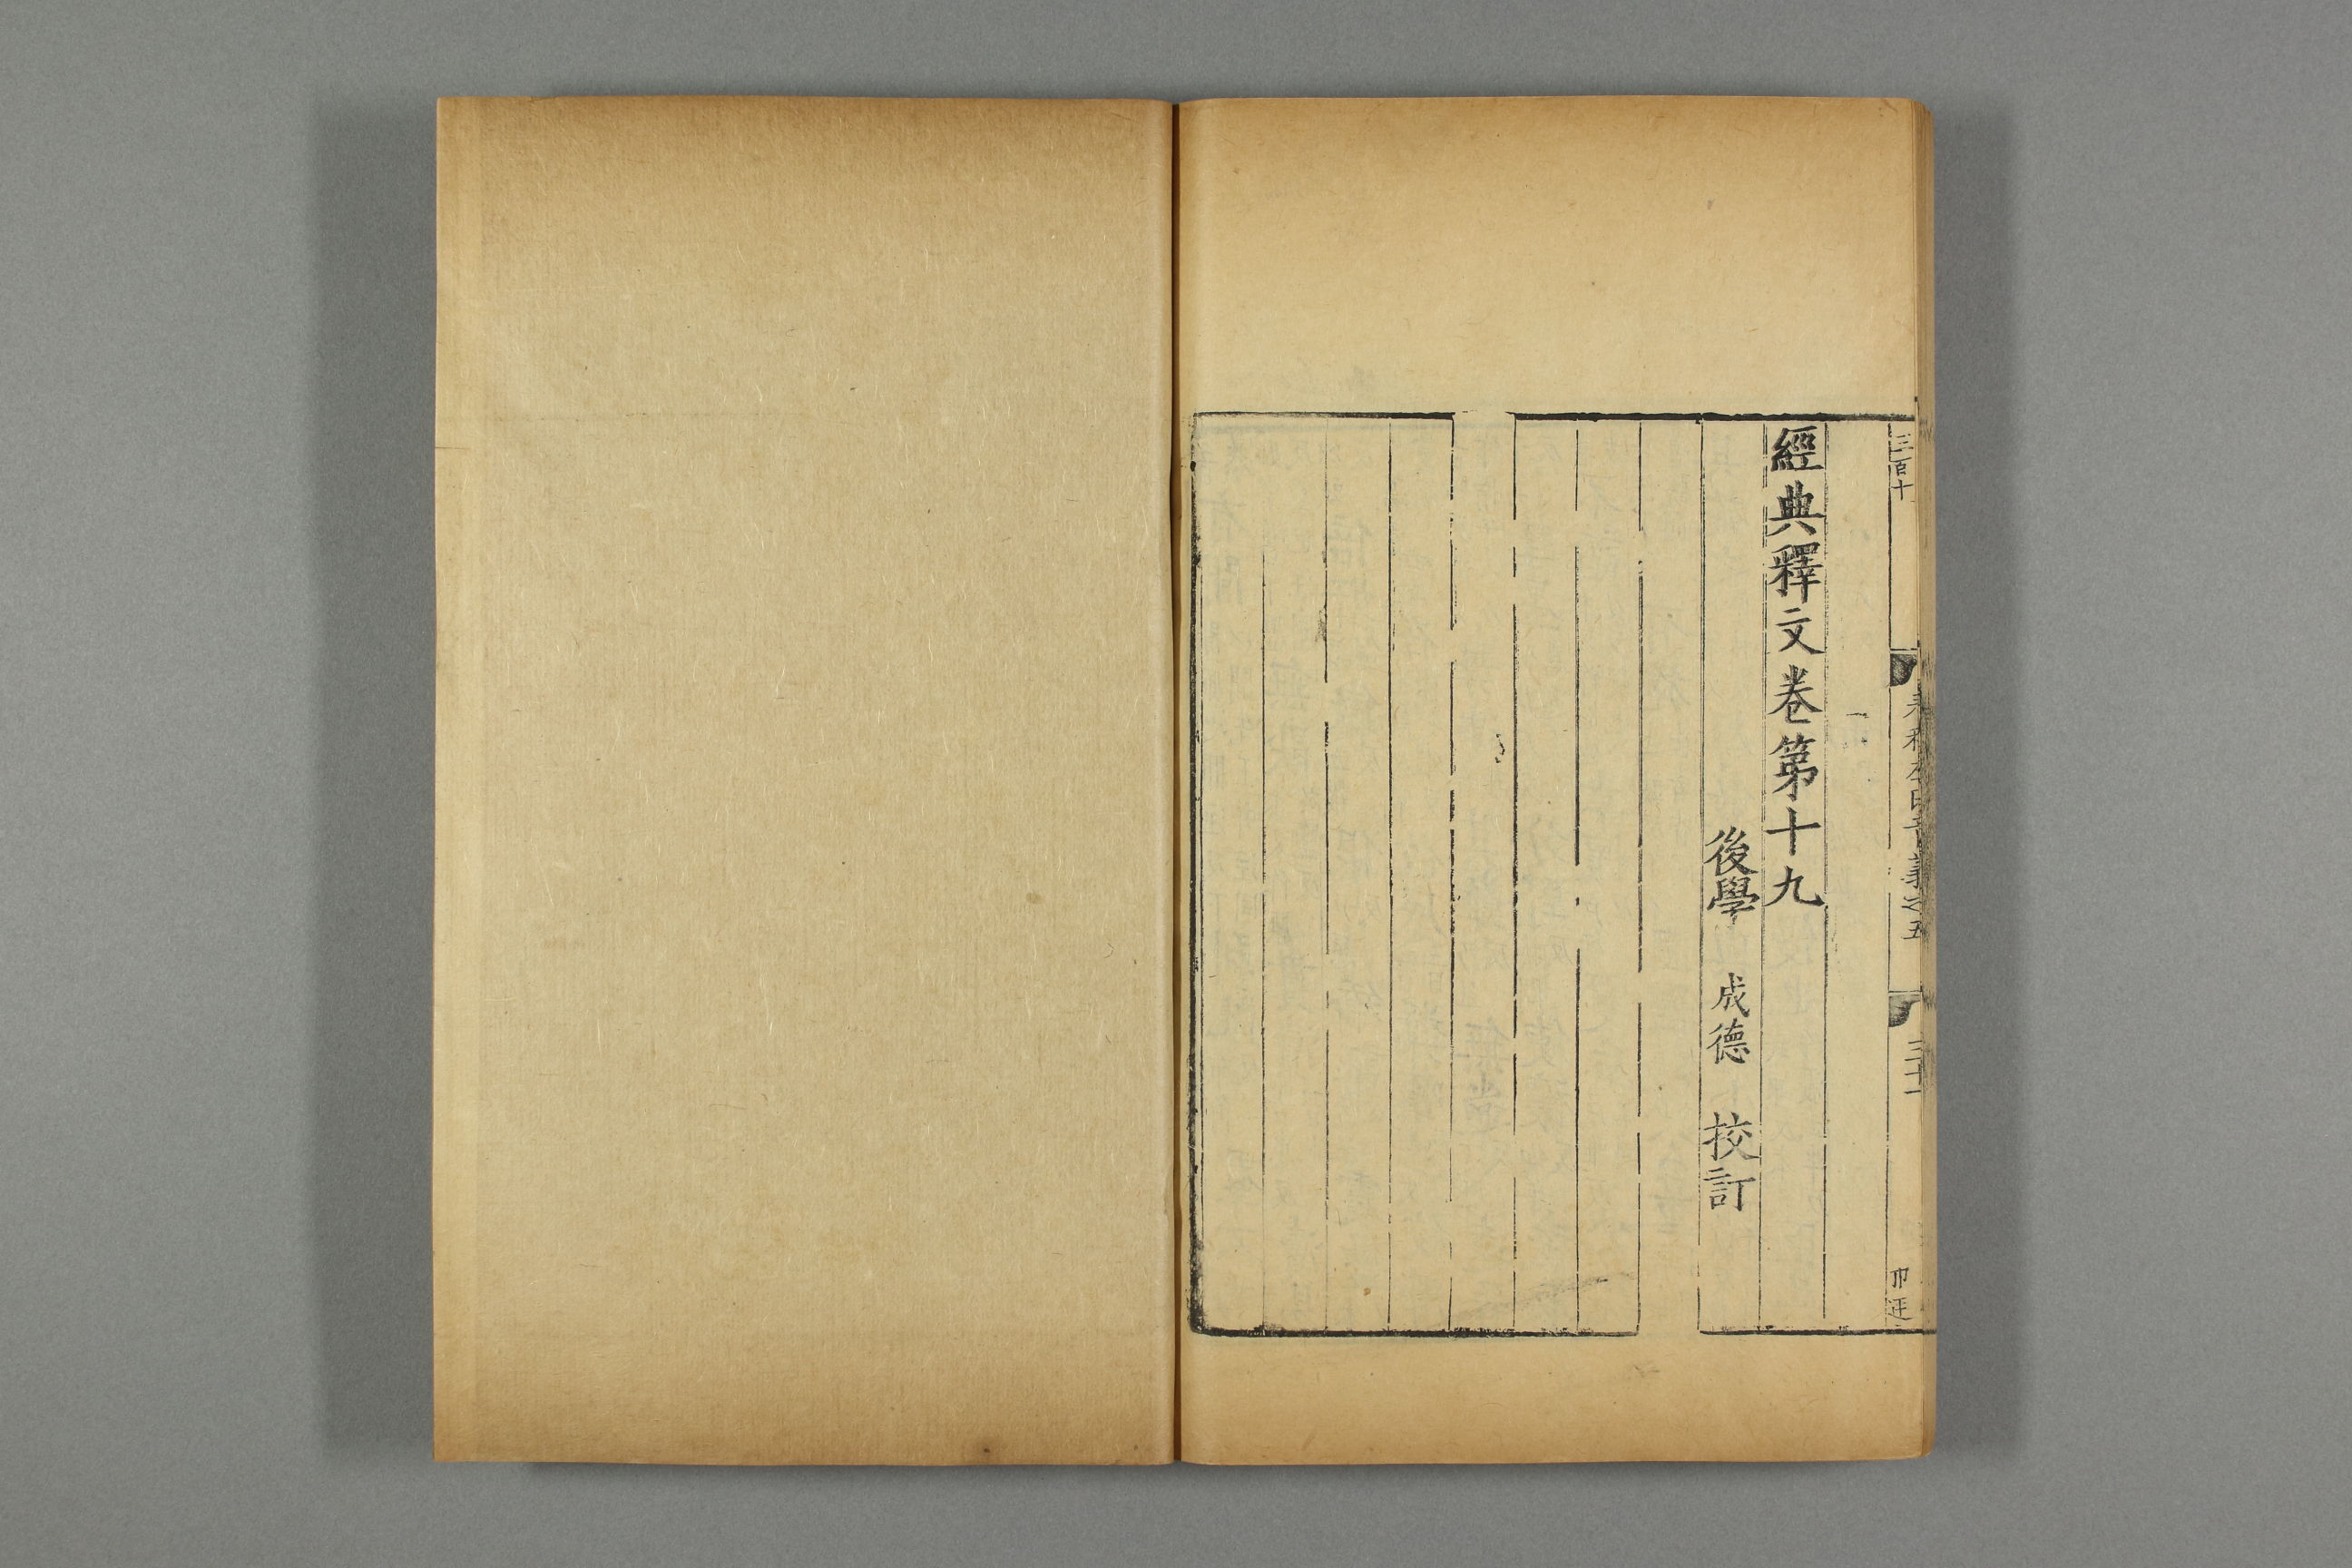 三百十
春秋左氏音義之五
三十一
經典釋文卷第十九
後學 成德 校訂